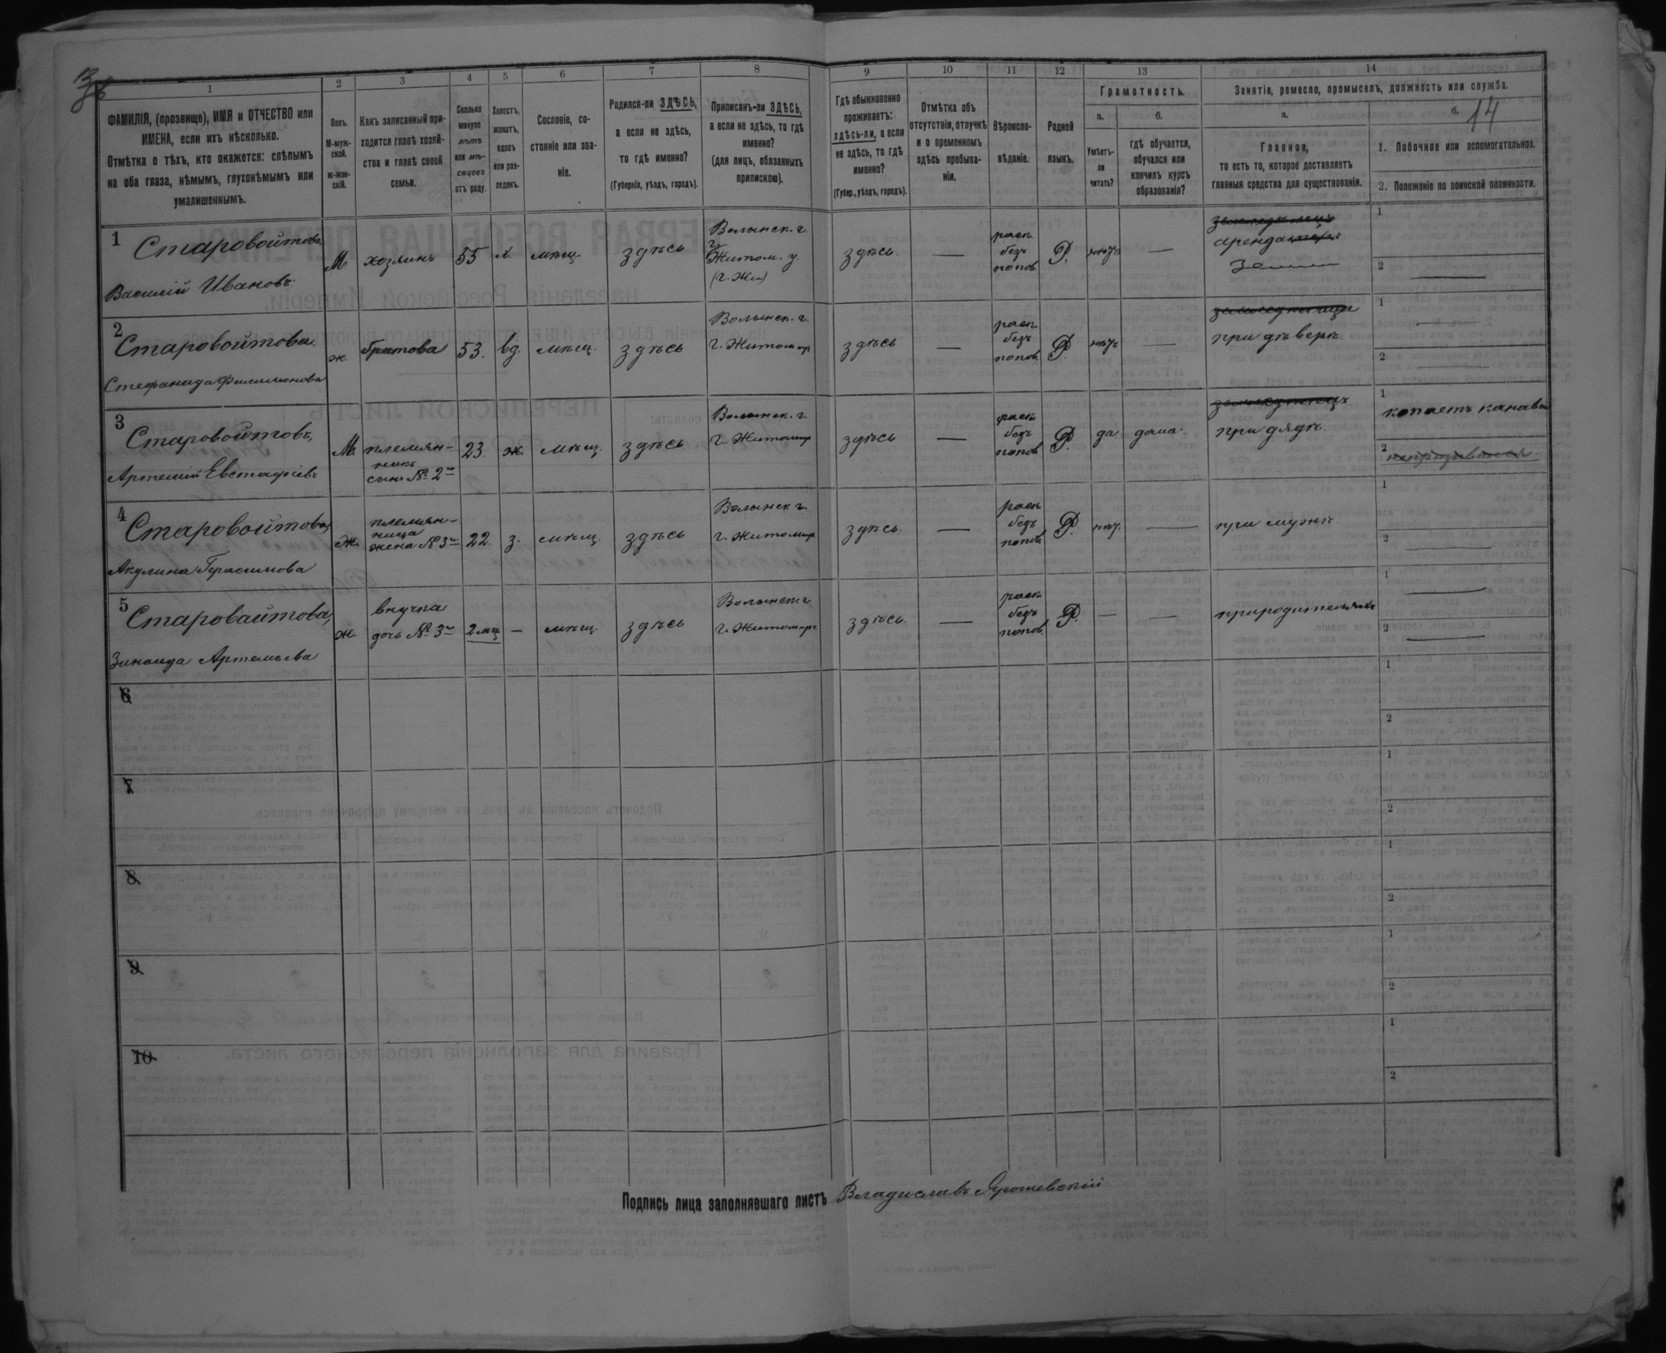 36
14
1
2
3
4
5
6
7
8
9
10
11
12
13
14
ФАМИЛІЯ, (прозвище), ИМЯ и ОТЧЕСТВО или ИМЕНА, если ихъ нѣсколько.
Отмѣтка о тѣхъ, кто окажется: слѣпымъ на оба глаза, нѣмымъ, глухонѣмымъ или умалишеннымъ.
Полъ.
М-мужской.
ж-женскій.
Какъ записанный приходится главѣ хозяйства и главѣ своей семьи.
Сколько минуло лѣтъ или мѣсяцевъ отъ роду.
Холостъ, женатъ, вдовъ или разведенъ.
Сословіе, состояніе или званіе.
Родился-ли ЗДѢСЬ, а если не здѣсь, то гдѣ именно?
(Губернія, уѣздъ, городъ).
Приписанъ-ли ЗДѢСЬ, а если не здѣсь, то гдѣ именно?
(для лицъ, обязанныхъ припискою).
Гдѣ обыкновенно проживаетъ: здѣсь-ли, а если не здѣсь, то гдѣ именно?
(Губер., уѣздъ, городъ).
Отмѣтка объ отсутствіи, отлучкѣ и о временномъ здѣсь пребываніи.
Вѣроисповѣданіе.
Родной языкъ.
Грамотность.
а.
Умѣетъ-ли читать?
б.
гдѣ обучается, обучался или кончилъ курсъ образованія?
Занятіе, ремесло, промыселъ, должность или служба.
а.
Главное,
то есть то, которое доставляетъ главныя средства для существованія.
б.
1. Побочное или вспомогательное.
2. Положеніе по воинской повинности.
1 Старовойтовъ
Василій Ивановъ
М. хозяинъ 55 х мѣщ. здѣсь
Волынск. г.
Житом. у.
здѣсь — раск. безъ попов. Р. — арендаторъ
1
2
2 Старовойтова
Стефанида Филимонова
ж братова 53. вд. мѣщ. здѣсь
Волынск. г.
г. Житомир
здѣсь — раск. безъ попов. Р. — при дѣверѣ
1
2
3 Старовойтовъ,
Артемій Евстафіевъ
М. племянникъ сынъ № 2го 23. ж. мѣщ. здѣсь
Волынск. г.
г. Житомир
здѣсь — раск. безъ попов. Р. да дома. при дядѣ.
1 копаетъ канавы
2
4 Старовойтова,
Акулина Герасимова
ж. племянница жена № 3го 22. з. мѣщ. здѣсь
Волынск г.
г. Житомир
здѣсь. — раск. безъ попов. Р. — при мужѣ
1
2
5 Старовайтова,
Зинаида Артемьева
ж. внучка дочь № 3го 2 мц — мѣщ. здѣсь
Волынск г
г. Житомиръ
здѣсь. — раск. безъ попов. Р. — — при родителяхъ
1
2
6
1
2
7
1
2
8
1
2
9
1
2
10
1
2
Подпись лица заполнявшаго листъ Владиславъ Ярошевскій